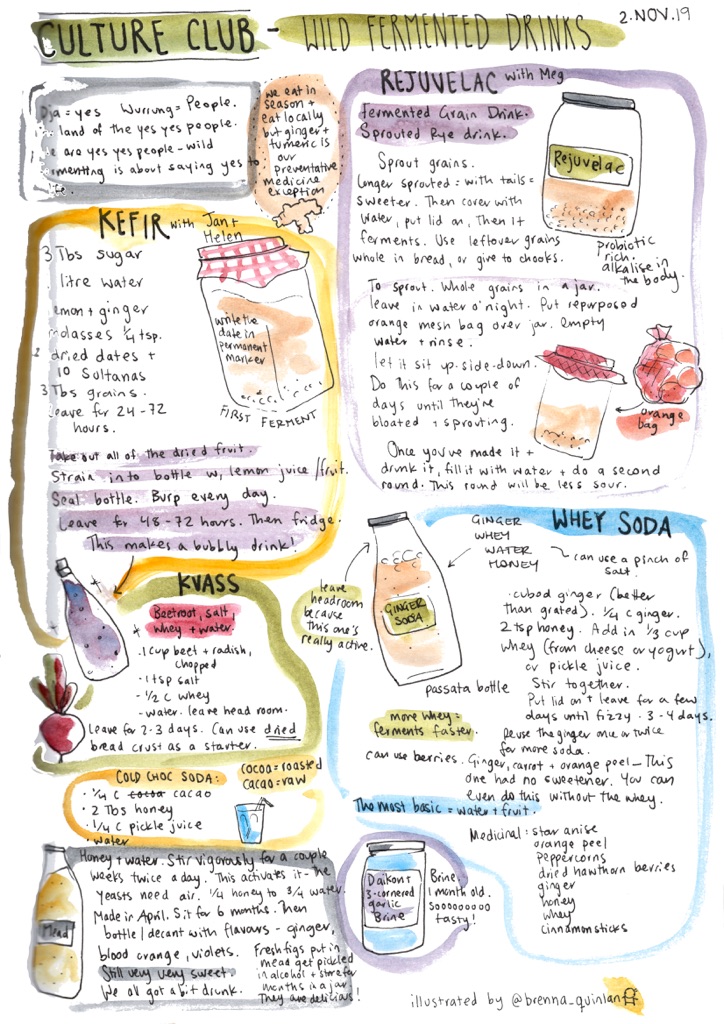 CULTURE CLUB - WILD FERMENTED DRINKS
2.NOV.19
= yes Wurrung = People.
land of the yes yes people.
are yes yes people - wild
is about saying yes to
we eat in
season +
eat locally
but ginger +
turmeric is
our
preventative
medicine
exception
KEFIR with Jan +
Helen
3 Tbs sugar
litre water
lemon + ginger
molasses 1/4 tsp.
dried dates +
10 Sultanas
3 Tbs grains.
leave for 24-72
hours.
write the
date in
permanent
marker
FIRST FERMENT
Take out all of the dried fruit.
Strain into bottle w, lemon juice/fruit.
Seal bottle. Burp every day.
Leave for 48-72 hours. Then fridge.
This makes a bubbly drink!
REJUVELAC with Meg
Fermented Grain Drink.
Sprouted Rye drink.
Sprout grains.
Longer sprouted = with tails =
sweeter. Then cover with
water, put lid on, Then it
ferments. Use leftover grains
whole in bread, or give to chooks.
Rejuvelac
probiotic
rich.
alkalise in
the body.
To sprout. Whole grains in a jar.
leave in water o'night. Put repurposed
orange mesh bag over jar. Empty
water + rinse.
let it sit up-side-down.
Do this for a couple of
days until they're
bloated + sprouting.
orange
bag
Once you've made it +
drunk it, fill it with water + do a second
round. This round will be less sour.
KVASS
Beetroot, salt
whey + water.
· 1 cup beet + radish,
chopped
· 1 tsp salt
· 1/2 C whey
· water. leave head room.
Leave for 2-3 days. Can use dried
bread crust as a starter.
WHEY SODA
GINGER
WHEY
WATER
HONEY
can use a pinch of
salt.
leave
headroom
because
this one's
really active.
GINGER
SODA
passata bottle
· cubed ginger (better
than grated). 1/4 C ginger.
2 tsp honey. Add in 1/3 cup
whey (from cheese or yogurt),
or pickle juice.
Stir together.
Put lid on + leave for a few
days until fizzy. 3-4 days.
Reuse the ginger once or twice
for more soda.
more whey =
ferments faster.
can use berries.
Ginger, carrot + orange peel - This
one had no sweetener. You can
even do this without the whey.
The most basic = water + fruit.
Medicinal: star anise
orange peel
Peppercorns
dried hawthorn berries
ginger
honey
whey
cinnamon sticks
COLD CHOC SODA:
cocoa = roasted
Cacao = raw
· 1/4 C cocoa cacao
· 2 Tbs honey
· 1/4 C pickle juice
· water
Mead
Honey + water. Stir vigorously for a couple
weeks twice a day. This activates it - the
yeasts need air. 1/4 honey to 3/4 water.
Made in April. Sit for 6 months. Then
bottle/decant with flavours - ginger,
blood orange, violets.
Still very very sweet.
We all got a bit drunk.
Fresh figs put in
mead get pickled
in alcohol + store for
months in a jar
They are delicious!
Daikon +
3-cornered
garlic
Brine
Brine
1 month old.
sooooooooo
tasty!
illustrated by @brenna_quinlan